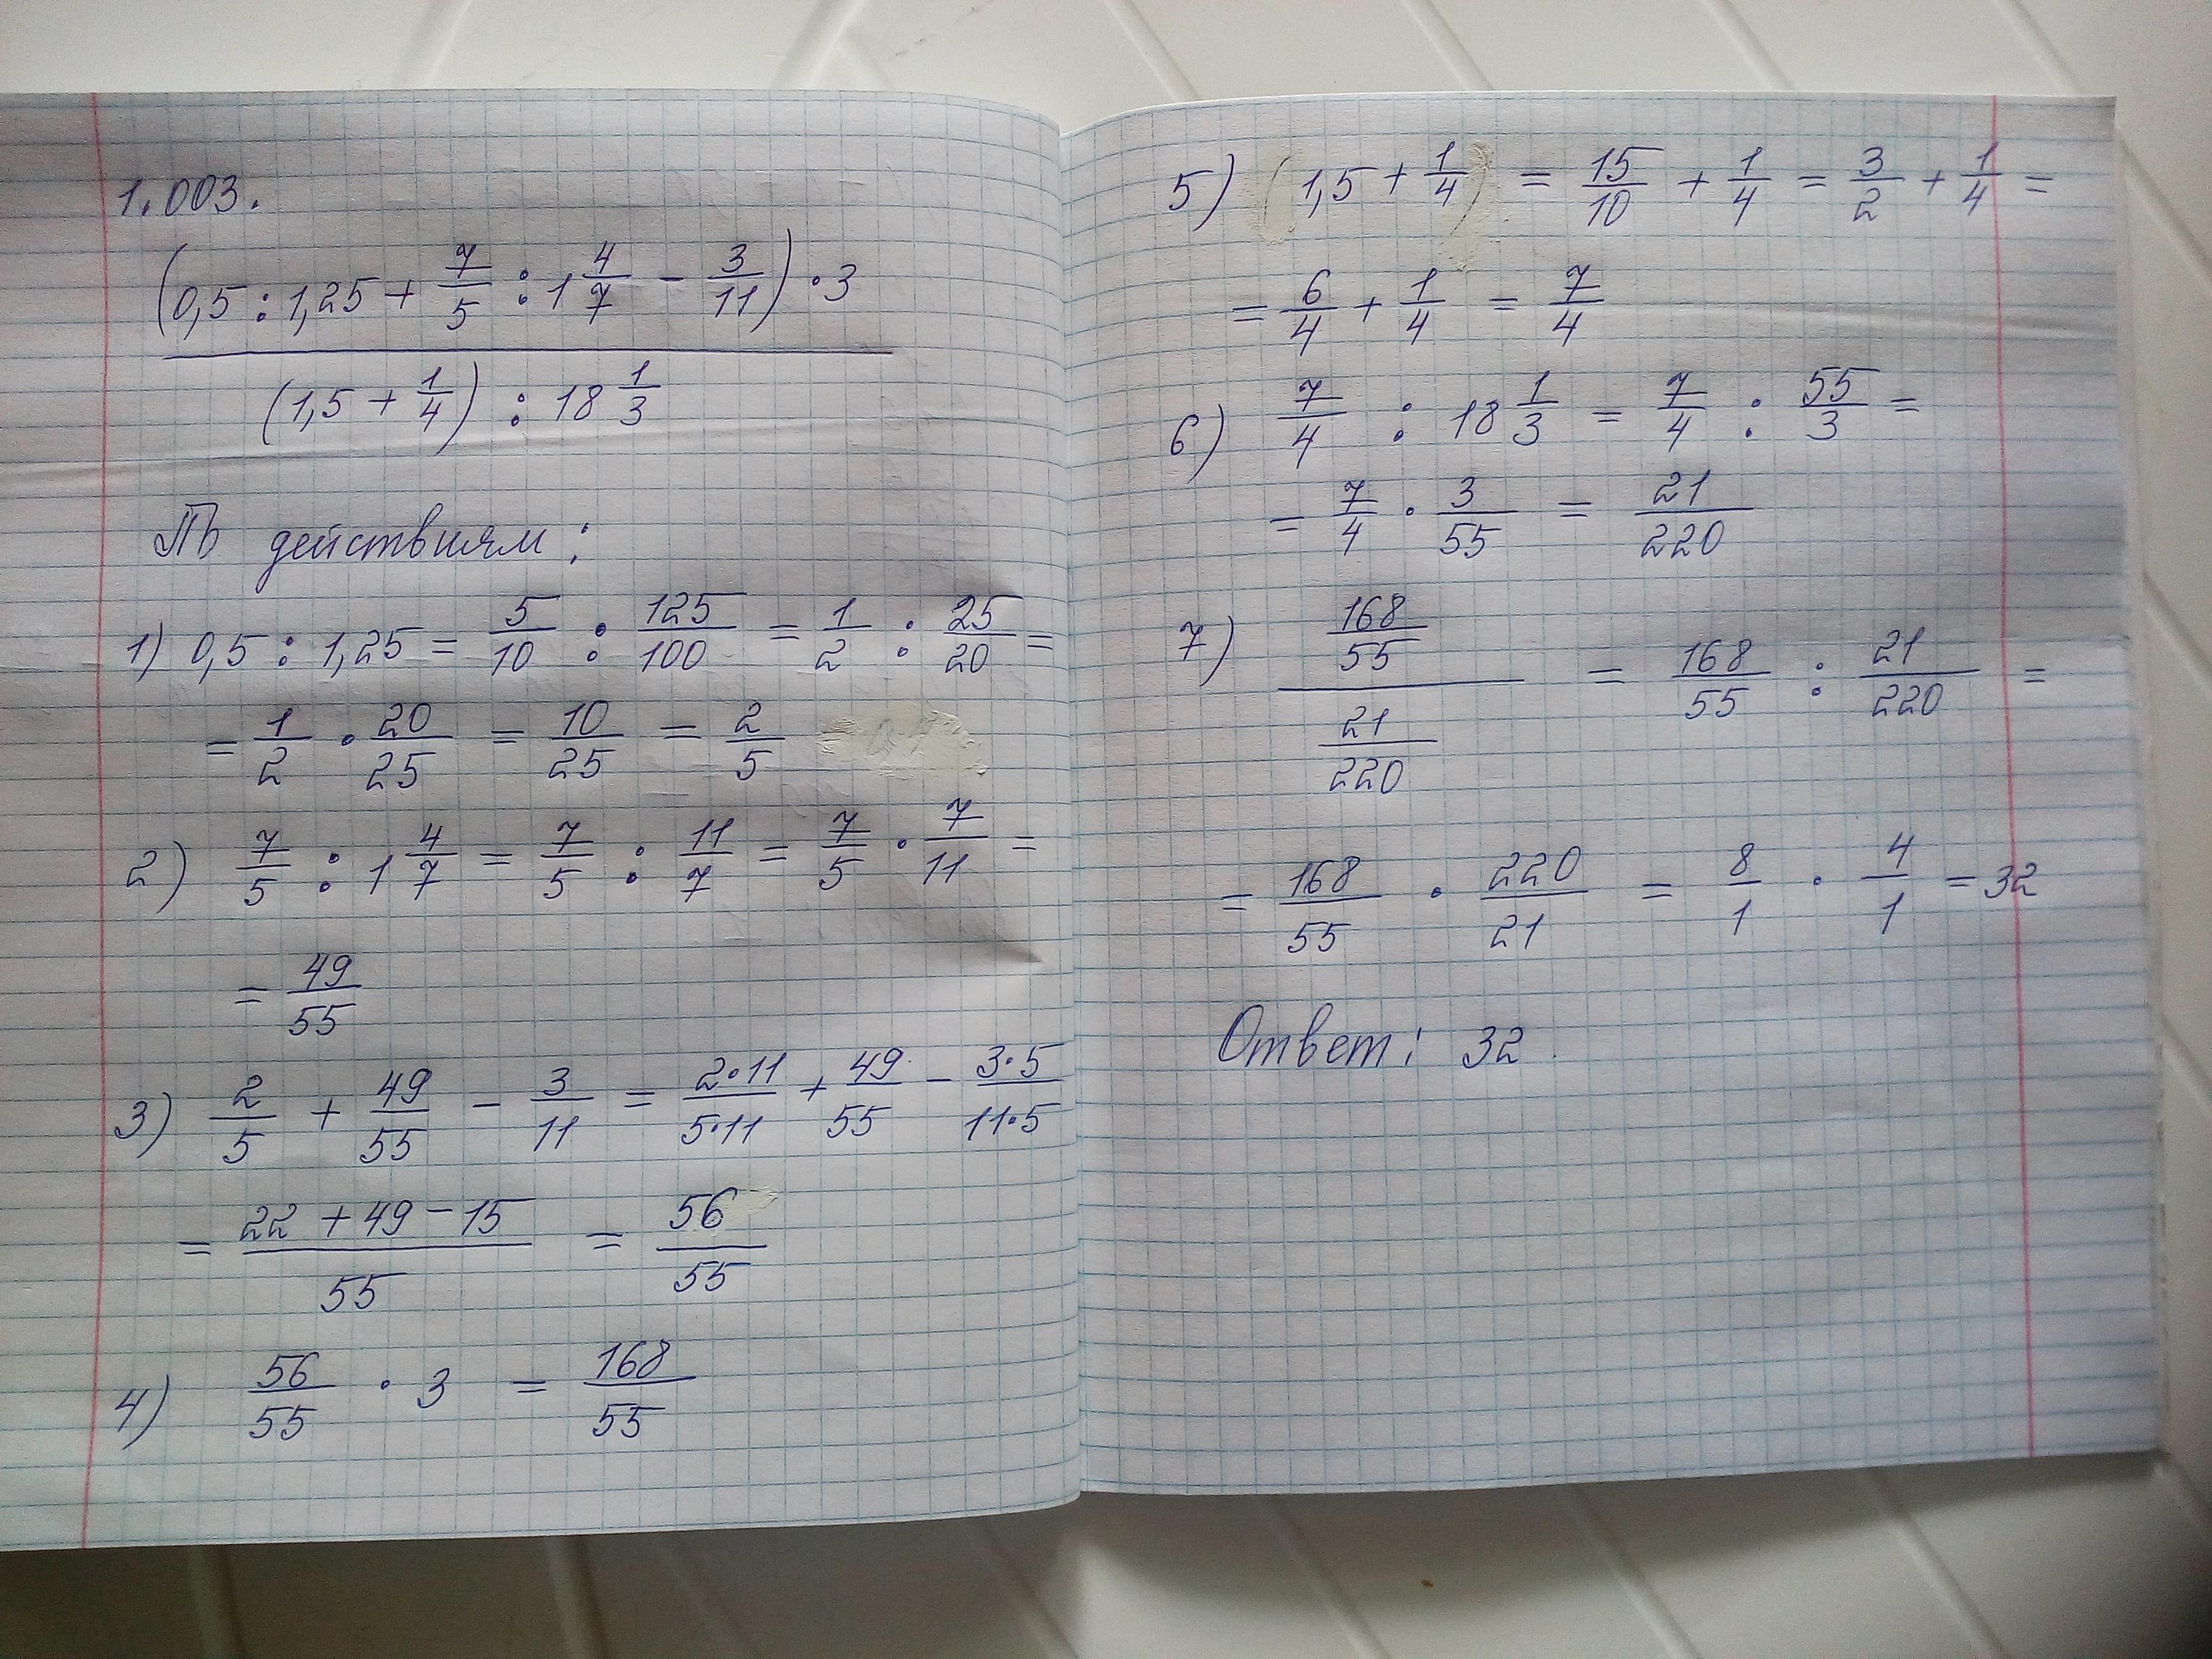 1.003.
(0,5 : 1,25 + 7/5 : 1 4/7 − 3/11) · 3
(1,5 + 1/4) : 18 1/3
По действиям:
1) 0,5 : 1,25 = 5/10 : 125/100 = 1/2 : 25/20 =
= 1/2 · 20/25 = 10/25 = 2/5
2) 7/5 : 1 4/7 = 7/5 : 11/7 = 7/5 · 7/11 =
= 49/55
3) 2/5 + 49/55 − 3/11 = 2·11/5·11 + 49/55 − 3·5/11·5
= 22 + 49 − 15/55 = 56/55
4) 56/55 · 3 = 168/55
5) (1,5 + 1/4) = 15/10 + 1/4 = 3/2 + 1/4 =
= 6/4 + 1/4 = 7/4
6) 7/4 : 18 1/3 = 7/4 : 55/3 =
= 7/4 · 3/55 = 21/220
7) 168/55 / 21/220 = 168/55 : 21/220 =
= 168/55 · 220/21 = 8/1 · 4/1 = 32
Ответ: 32.